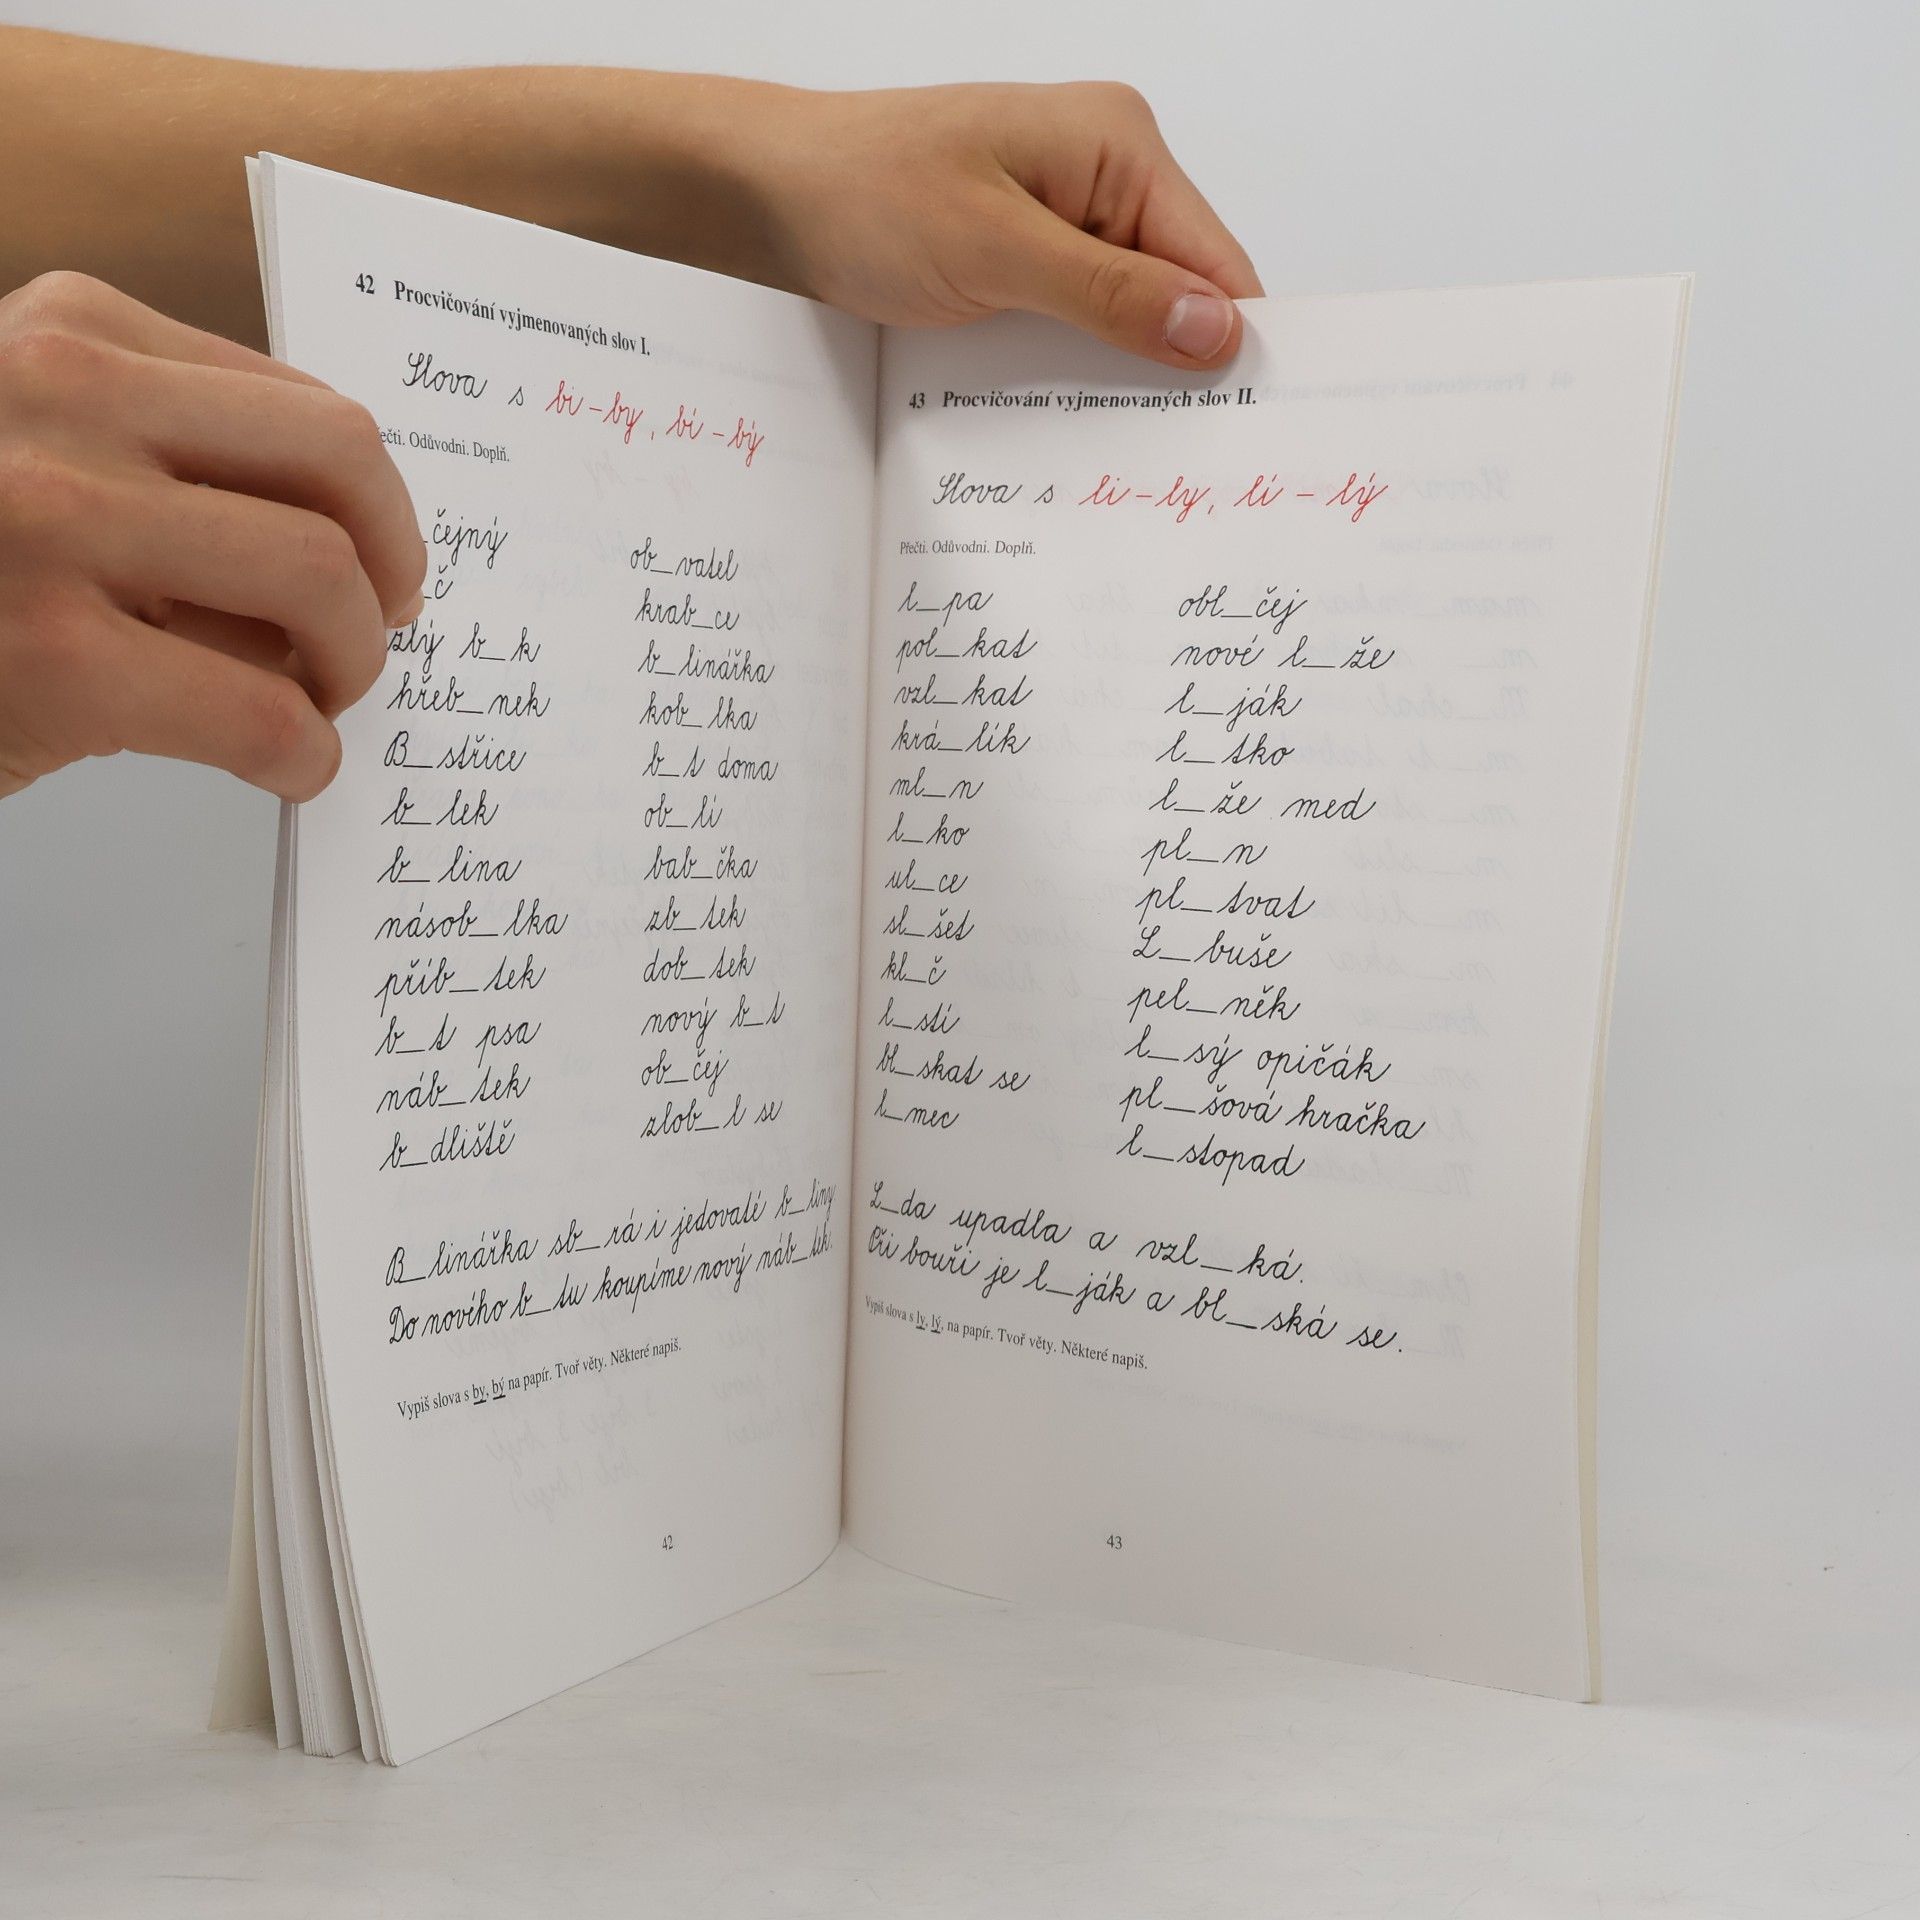 42 Procvičování vyjmenovaných slov I.
Slova s bi – by, bí – bý
Odůvodni. Doplň.
_čejný
_č
zlý b_k
hřeb_nek
B_střice
b_lek
b_lina
násob_lka
příb_tek
b_t psa
náb_tek
b_dliště
ob_vatel
krab_ce
b_linářka
kob_lka
b_t doma
ob_lí
bab_čka
zb_tek
dob_tek
nový b_t
ob_čej
zlob_l se
B_linářka sb_rá i jedovaté b_liny.
Do nového b_tu koupíme nový náb_tek.
Vypiš slova s by, bý na papír. Tvoř věty. Některé napiš.
42
43 Procvičování vyjmenovaných slov II.
Slova s li – ly, lí – lý
Přečti. Odůvodni. Doplň.
l_pa
pol_kat
vzl_kat
krá_lík
ml_n
l_ko
ul_ce
sl_šet
kl_č
l_stí
bl_skat se
l_mec
obl_čej
nové l_že
l_ják
l_tko
l_že med
pl_n
pl_tvat
L_buše
pel_něk
l_sý opičák
pl_šová hračka
l_stopad
L_da upadla a vzl_ká.
Při bouři je l_ják a bl_ská se.
Vypiš slova s ly, lý, na papír. Tvoř věty. Některé napiš.
43